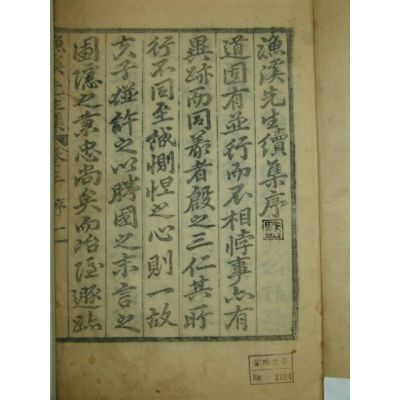 漁溪先生續集序
道固有並行而不相悖事亦有
異跡而同義者殷之三仁其所
行不同至誠惻怛之心則一故
夫子許之以勝國之末言之
圃隱之秉忠尚矣而冶隱遯跡
漁溪先生集 卷三 序 一
№